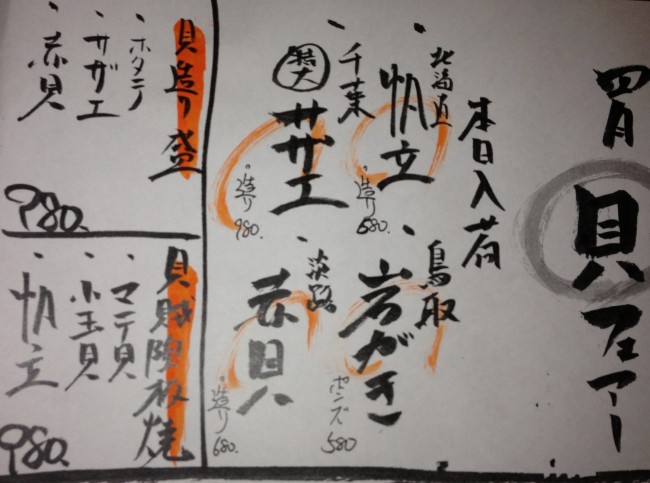 四月 貝フェアー
本日入荷
・北海道
帆立
造り 680.
・鳥取
岩がき
ポンズ 580
・千葉
特大 サザエ
・造り 980.
・淡路
赤貝
・造り 680.
貝造り盛
・ホタテ
・サザエ
・赤貝
980.
貝賊陶板焼
・マテ貝
・小玉貝
・帆立
980.